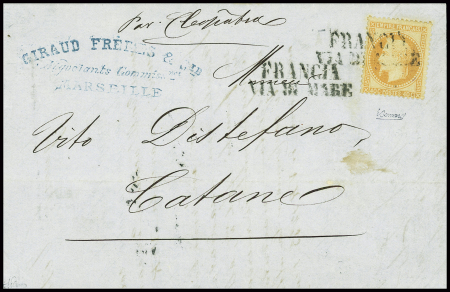 Par Cleopatra
GIRAUD FRÈRES &
Négociants Commiss
MARSEILLE
FRANCIA
VIA DI MARE
FRANCIA
VIA DI MARE
Monsieur
Vito Distefano,
Catane